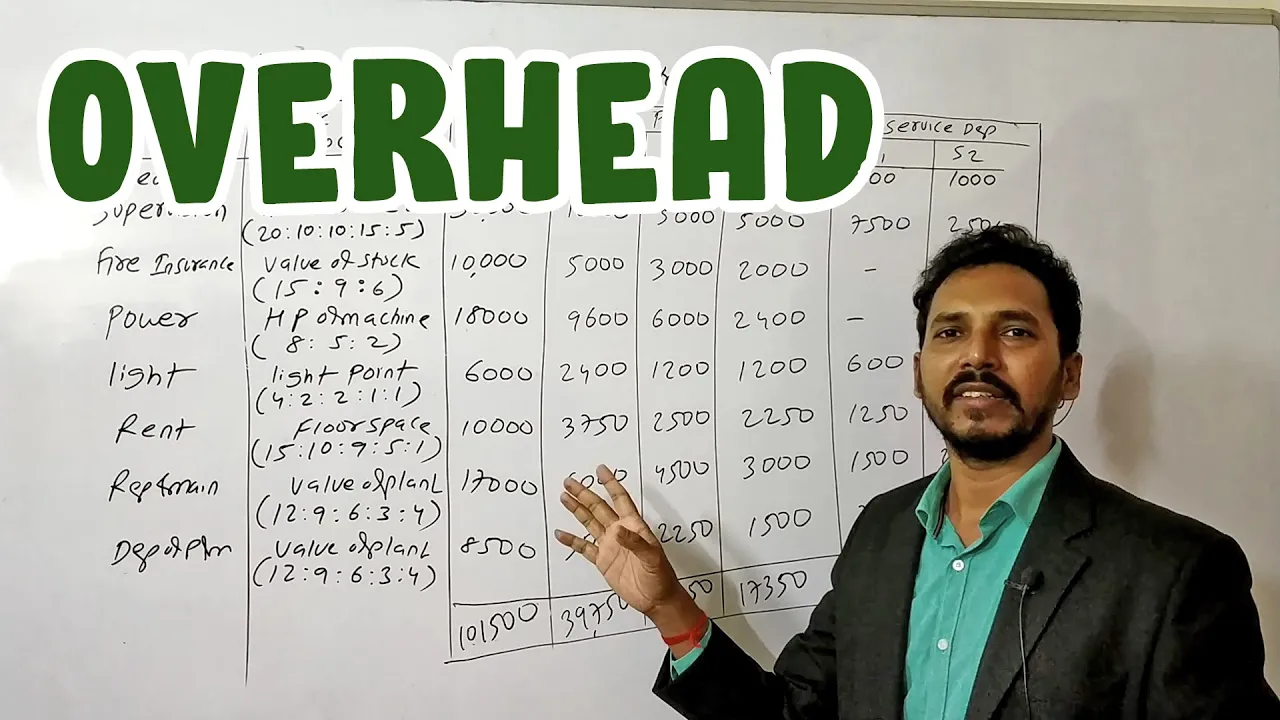 OVERHEAD
Service Dep
S2
00 1000
Supervision 5000 5000 7500 250
(20:10:10:15:5)
Fire Insurance Value of stock 10,000 5000 3000 2000 -
(15:9:6)
Power HP of machine 18000 9600 6000 2400 -
(8:5:2)
light light Point 6000 2400 1200 1200 600
(4:2:2:1:1)
Rent Floor space 10000 3750 2500 2250 1250
(15:10:9:5:1)
Rep&main Value of plant 17000 6000 4500 3000 1500
(12:9:6:3:4)
Dep of Plan Value of plant 8500 2250 1500
(12:9:6:3:4)
101500 39,750 50 17350